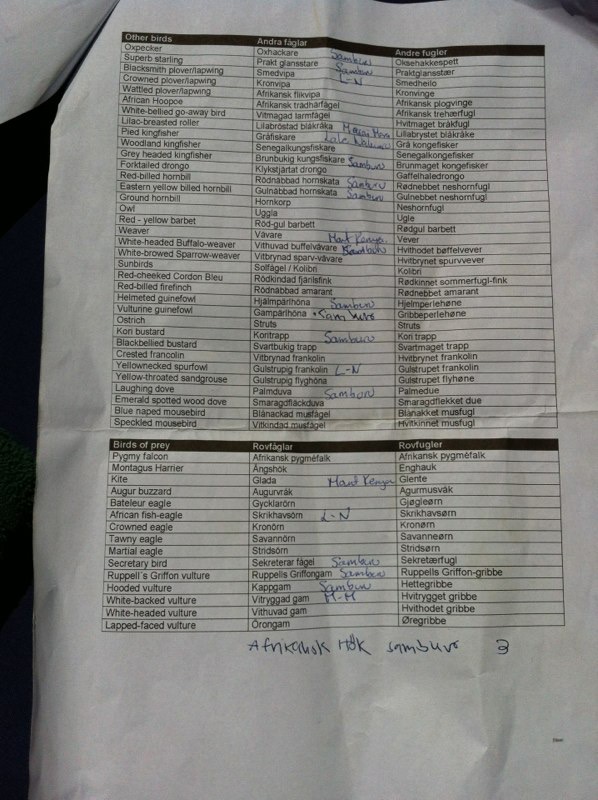 Other birds Andra fåglar Andre fugler
Oxpecker Oxhackare Samburu Oksehakkespett
Superb starling Prakt glansstare Samburu Praktglansstær
Blacksmith plover/lapwing Smedvipa L-N Smedheilo
Crowned plover/lapwing Kronvipa Kronvinge
Wattled plover/lapwing Afrikansk flikvipa Afrikansk plogvinge
African Hoopoe Afrikansk trädharfågel Afrikansk trehærfugl
White-bellied go-away bird Vitmagad larmfågel Hvitmaget bråkfugl
Lilac-breasted roller Lilabröstad blåkråka Lillabrystet blåkråke
Pied kingfisher Gråfiskare Grå kongefisker
Woodland kingfisher Senegalkungsfiskare Senegalkongefisker
Grey headed kingfisher Brunbukig kungsfiskare Samburu Brunmaget kongefisker
Forktailed drongo Klykstjärtat drongo Gaffelhaledrongo
Red-billed hornbill Rödnäbbad hornskata Samburu Rødnebbet neshornfugl
Eastern yellow billed hornbill Gulnäbbad hornskata Samburu Gulnebbet neshornfugl
Ground hornbill Hornkorp Neshornfugl
Owl Uggla Ugle
Red - yellow barbet Röd-gul barbett Rødgul barbett
Weaver Vävare Mont Kenya Vever
White-headed Buffalo-weaver Vithuvad buffelvävare Samburu Hvithodet bøffelvever
White-browed Sparrow-weaver Vitbrynad sparv-vävare Hvitbrynet spurvvever
Sunbirds Solfågel / Kolibri Kolibri
Red-cheeked Cordon Bleu Rödkindad fjärilsfink Rødkinnet sommerfugl-fink
Red-billed firefinch Rödnäbbad amarant Rødnebbet amarant
Helmeted guinefowl Hjälmpärlhöna Samburu Hjelmperlehøne
Vulturine guinefowl Gampärlhöna Samburu Gribbeperlehøne
Ostrich Struts Struts
Kori bustard Koritrapp Samburu Kori trapp
Blackbellied bustard Svartbukig trapp Svartmaget trapp
Crested francolin Vitbrynad frankolin Hvitbrynet frankolin
Yellownecked spurfowl Gulstrupig frankolin L-N Gulstrupet frankolin
Yellow-throated sandgrouse Gulstrupig flyghöna Gulstrupet flyhøne
Laughing dove Palmduva Samburu Palmedue
Emerald spotted wood dove Smaragdfläckduva Smaragdflekket due
Blue naped mousebird Blånackad musfågel Blånakket musfugl
Speckled mousebird Vitkindad musfågel Hvitkinnet musfugl
Birds of prey Rovfåglar Rovfugler
Pygmy falcon Afrikansk pygméfalk Afrikansk pygméfalk
Montagus Harrier Ängshök Enghauk
Kite Glada Mont Kenya Glente
Augur buzzard Augurvråk Agurmusvåk
Bateleur eagle Gycklarörn Gjøgleørn
African fish-eagle Skrikhavsörn L-N Skrikhavsørn
Crowned eagle Kronörn Kronørn
Tawny eagle Savannörn Savanneørn
Martial eagle Stridsörn Stridsørn
Secretary bird Sekreterar fågel Samburu Sekretærfugl
Ruppell´s Griffon vulture Ruppells Griffongam Samburu Ruppells Griffon-gribbe
Hooded vulture Kappgam Samburu Hettegribbe
White-backed vulture Vitryggad gam M-M Hvitrygget gribbe
White-headed vulture Vithuvad gam Hvithodet gribbe
Lapped-faced vulture Örongam Øregribbe
Afrikansk Hök Samburu 3